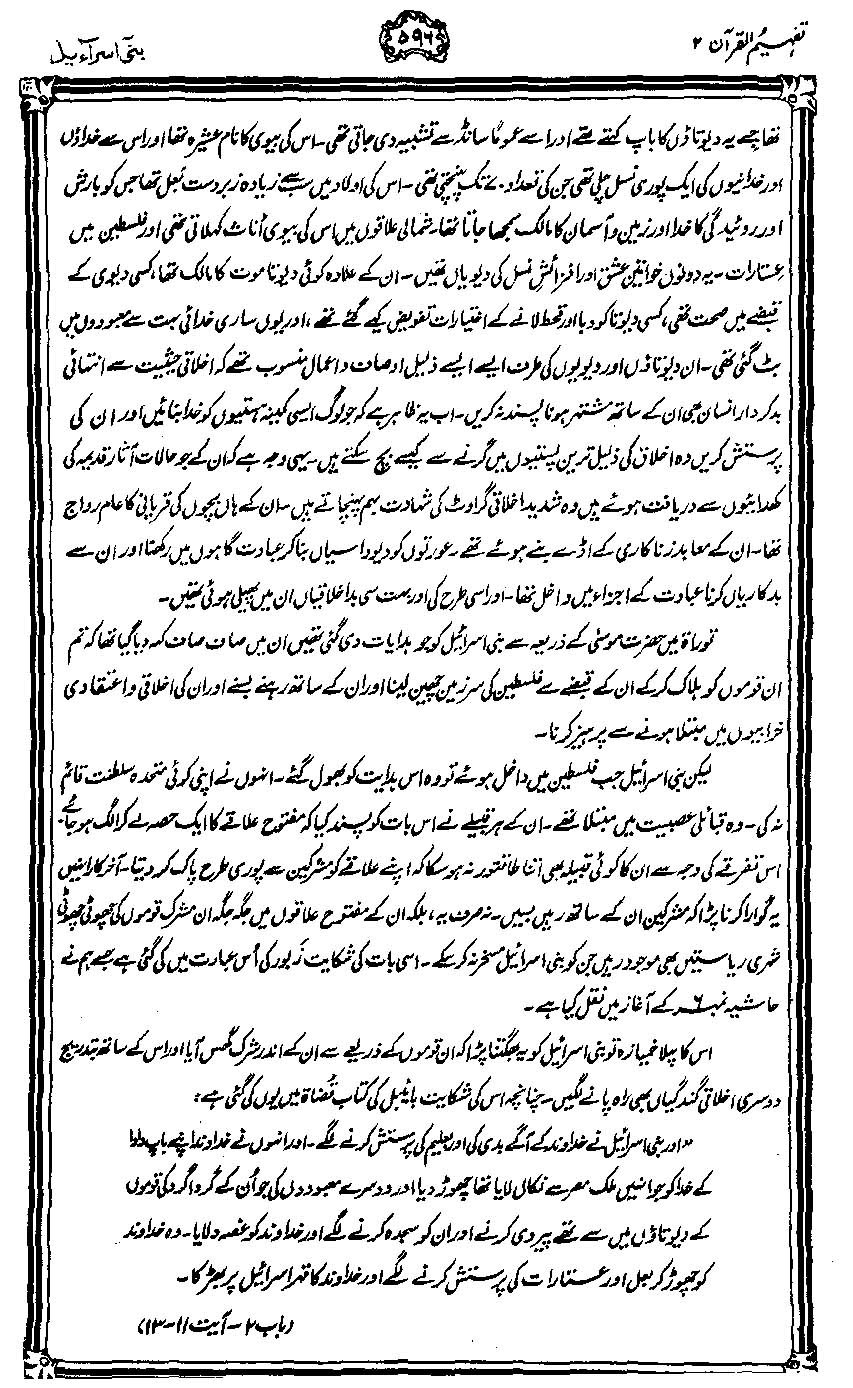 تفہیم القرآن ۲
۵۹۶
بنی اسرآءیل
تھا جسے یہ دیوتاؤں کا باپ کہتے تھے اور اسے عموماً سانڈ سے تشبیہ دی جاتی تھی۔ اس کی بیوی کا نام عشیرہ تھا اور اس سے خداؤں
اور خدانیوں کی ایک پوری نسل چلی تھی جن کی تعداد ۷۰ تک پہنچتی تھی۔ اس کی اولاد میں سب سے زیادہ زبردست بَعل تھا جس کو بارش
اور روئیدگی کا خدا اور زمین و آسمان کا مالک سمجھا جاتا تھا۔ شمالی علاقوں میں اس کی بیوی اُناث کہلاتی تھی اور فلسطین میں
عِستارات۔ یہ دونوں خواتین عشق اور افزائش نسل کی دیویاں تھیں۔ ان کے علاوہ کوئی دیوتا موت کا مالک تھا، کسی دیوی کے
قبضے میں صحت تھی، کسی دیوتا کو وبا اور قحط لانے کے اختیارات تفویض کیے گئے تھے، اور یوں ساری خدائی بہت سے معبودوں میں
بٹ گئی تھی۔ ان دیوتاؤں اور دیویوں کی طرف ایسے ایسے ذلیل اوصاف و اعمال منسوب تھے کہ اخلاقی حیثیت سے انتہائی
بدکردار انسان بھی ان کے ساتھ مشتہر ہونا پسند نہ کریں۔ اب یہ ظاہر ہے کہ جو لوگ ایسی کمینہ ہستیوں کو خدا بنائیں اور ان کی
پرستش کریں وہ اخلاق کی ذلیل ترین پستیوں میں گرنے سے کیسے بچ سکتے ہیں۔ یہی وجہ ہے کہ ان کے جو حالات آثار قدیمہ کی
کھدائیوں سے دریافت ہوئے ہیں وہ شدید اخلاقی گراوٹ کی شہادت بہم پہنچاتے ہیں۔ ان کے ہاں بچوں کی قربانی کا عام رواج
تھا۔ ان کے معابد زناکاری کے اڈے بنے ہوئے تھے۔ عورتوں کو دیوداسیاں بنا کر عبادت گاہوں میں رکھنا اور ان سے
بدکاریاں کرنا عبادت کے اجزاء میں داخل تھا۔ اور اسی طرح کی اور بہت سی بداخلاقیاں ان میں پھیلی ہوئی تھیں۔
توراۃ میں حضرت موسیٰ کے ذریعہ سے بنی اسرائیل کو جو ہدایات دی گئی تھیں ان میں صاف صاف کہہ دیا گیا تھا کہ تم
ان قوموں کو ہلاک کر کے ان کے قبضے سے فلسطین کی سرزمین چھین لینا اور ان کے ساتھ رہنے بسنے اور ان کی اخلاقی و اعتقادی
خرابیوں میں مبتلا ہونے سے پرہیز کرنا۔
لیکن بنی اسرائیل جب فلسطین میں داخل ہوئے تو وہ اس ہدایت کو بھول گئے۔ انہوں نے اپنی کوئی متحدہ سلطنت قائم
نہ کی۔ وہ قبائلی عصبیت میں مبتلا تھے۔ ان کے ہر قبیلے نے اس بات کو پسند کیا کہ مفتوح علاقے کا ایک حصہ لے کر الگ ہو جائے۔
اس تفرقے کی وجہ سے ان کا کوئی قبیلہ بھی اتنا طاقتور نہ ہو سکا کہ اپنے علاقے کو مشرکین سے پوری طرح پاک کر دیتا۔ آخرکار انہیں
یہ گوارا کرنا پڑا کہ مشرکین ان کے ساتھ رہیں بسیں۔ نہ صرف یہ، بلکہ ان کے مفتوح علاقوں میں جگہ جگہ ان مشرک قوموں کی چھوٹی چھوٹی
شہری ریاستیں بھی موجود رہیں جن کو بنی اسرائیل مسخر نہ کر سکے۔ اسی بات کی شکایت زَبور کی اُس عبارت میں کی گئی ہے جسے ہم نے
حاشیہ نمبر ۶ کے آغاز میں نقل کیا ہے۔
اس کا پہلا خمیازہ تو بنی اسرائیل کو یہ بھگتنا پڑا کہ ان قوموں کے ذریعے سے ان کے اندر شرک گھس آیا اور اس کے ساتھ بتدریج
دوسری اخلاقی گندگیاں بھی راہ پانے لگیں۔ چنانچہ اس کی شکایت بائیبل کی کتاب قُضاۃ میں یوں کی گئی ہے:
”اور بنی اسرائیل نے خداوند کے آگے بدی کی اور بعلیم کی پرستش کرنے لگے۔ اور انہوں نے خداوند اپنے باپ دادا
کے خدا کو جو انہیں ملک مصر سے نکال لایا تھا چھوڑ دیا اور دوسرے معبودوں کی جو اُن کے گردا گرد کی قوموں
کے دیوتاؤں میں سے تھے پیروی کرنے اور ان کو سجدہ کرنے لگے اور خداوند کو غصہ دلایا۔ وہ خداوند
کو چھوڑ کر بعل اور عستارات کی پرستش کرنے لگے اور خداوند کا قہر اسرائیل پر بھڑکا۔
(باب ۲- آیت ۱۱-۱۳)